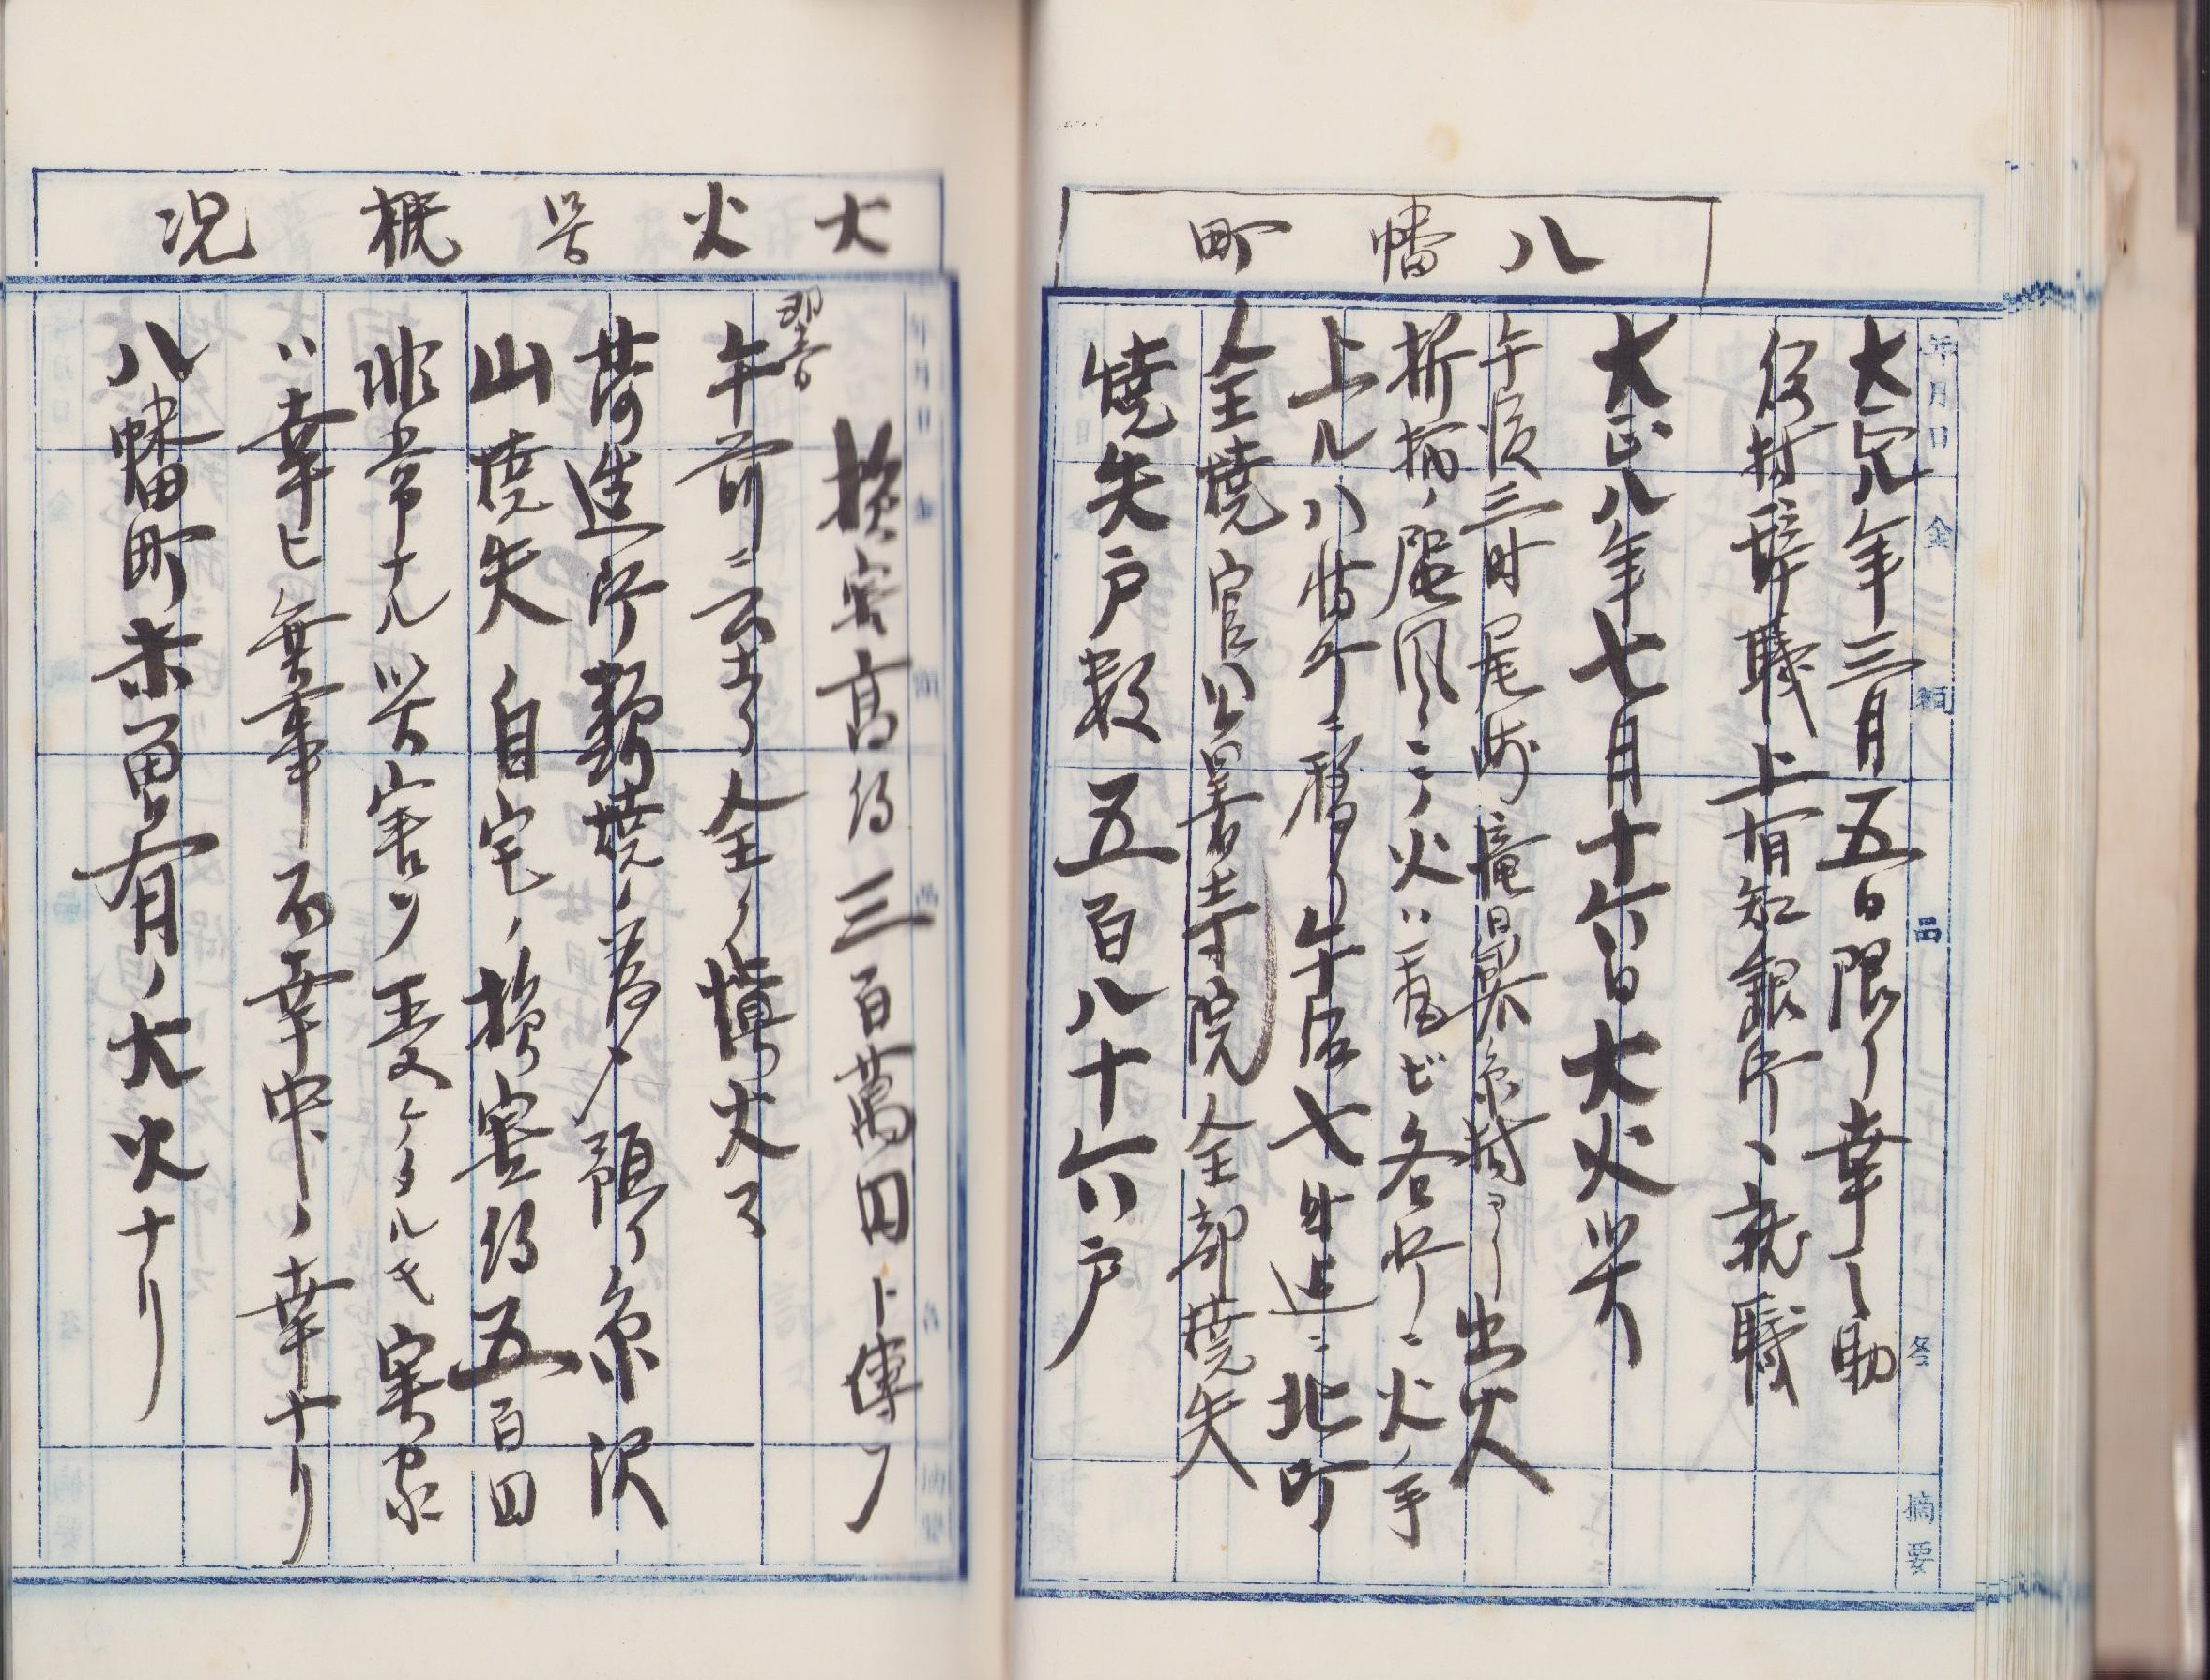 八幡町
年月日 金額 品 名 摘要
大正八年三月五日限リ幸之助
役村辞職上有知銀行へ就職
大正八年七月十六日大火災
午後三時尾崎
出火
折柄ノ風ニ火ハ
各所ニ火ノ手
上ル八
ニ移リ午后七時迄ニ北町
全焼官公署寺院全部焼失
焼失戸数五百八十六戸
大火災概況
損害高約三百萬円ト傳フ
翌
午前ニ至リ全ク鎮火ス
類焼ノ為メ預リ糸沢
山焼失自宅ノ損害約五百円
非常ナル災害ヲ受ケタルモ実家
ハ幸ヒ無事不幸中ノ幸ナリ
八幡町未曽有ノ大火ナリ